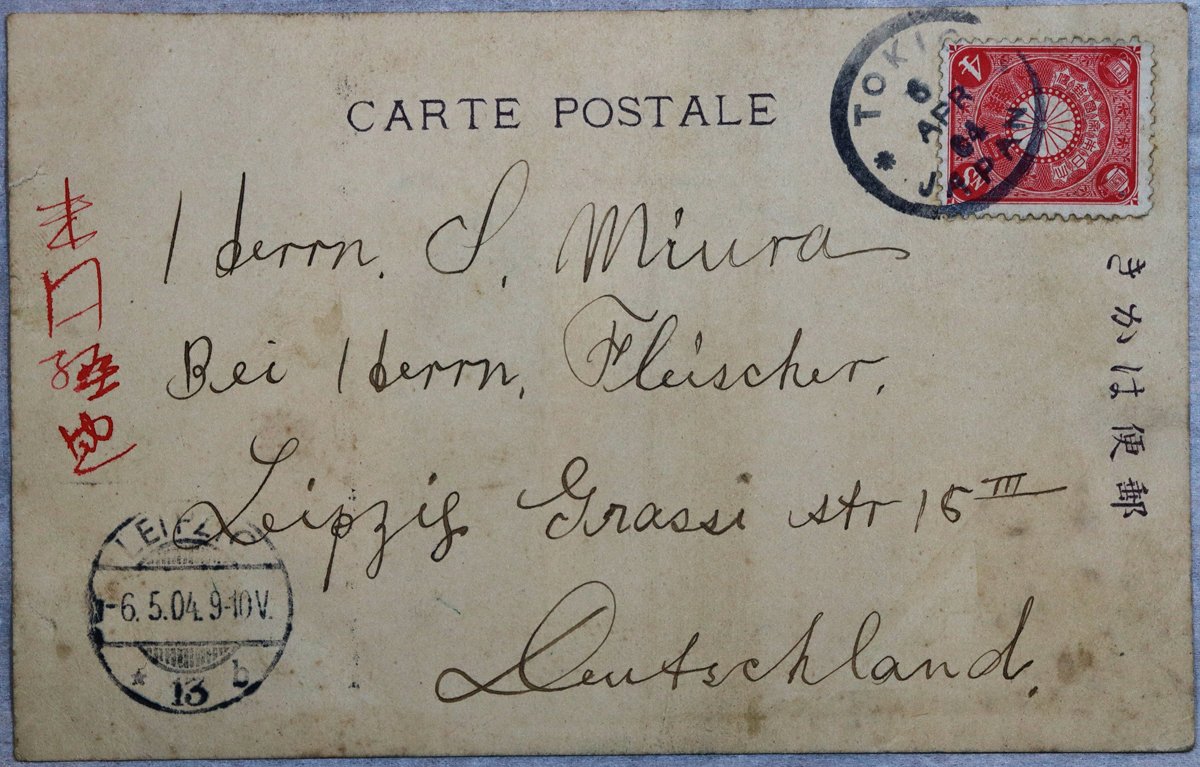 CARTE POSTALE
TOKIO
6
APR
04
JAPAN
4
Herrn. S. Miura
Bei Herrn. Fleischer.
Leipzig Grassi str 15 III
Deutschland.
米国経由
郵便はかき
LEIPZIG
-6.5.04. 9-10V.
* 13 b